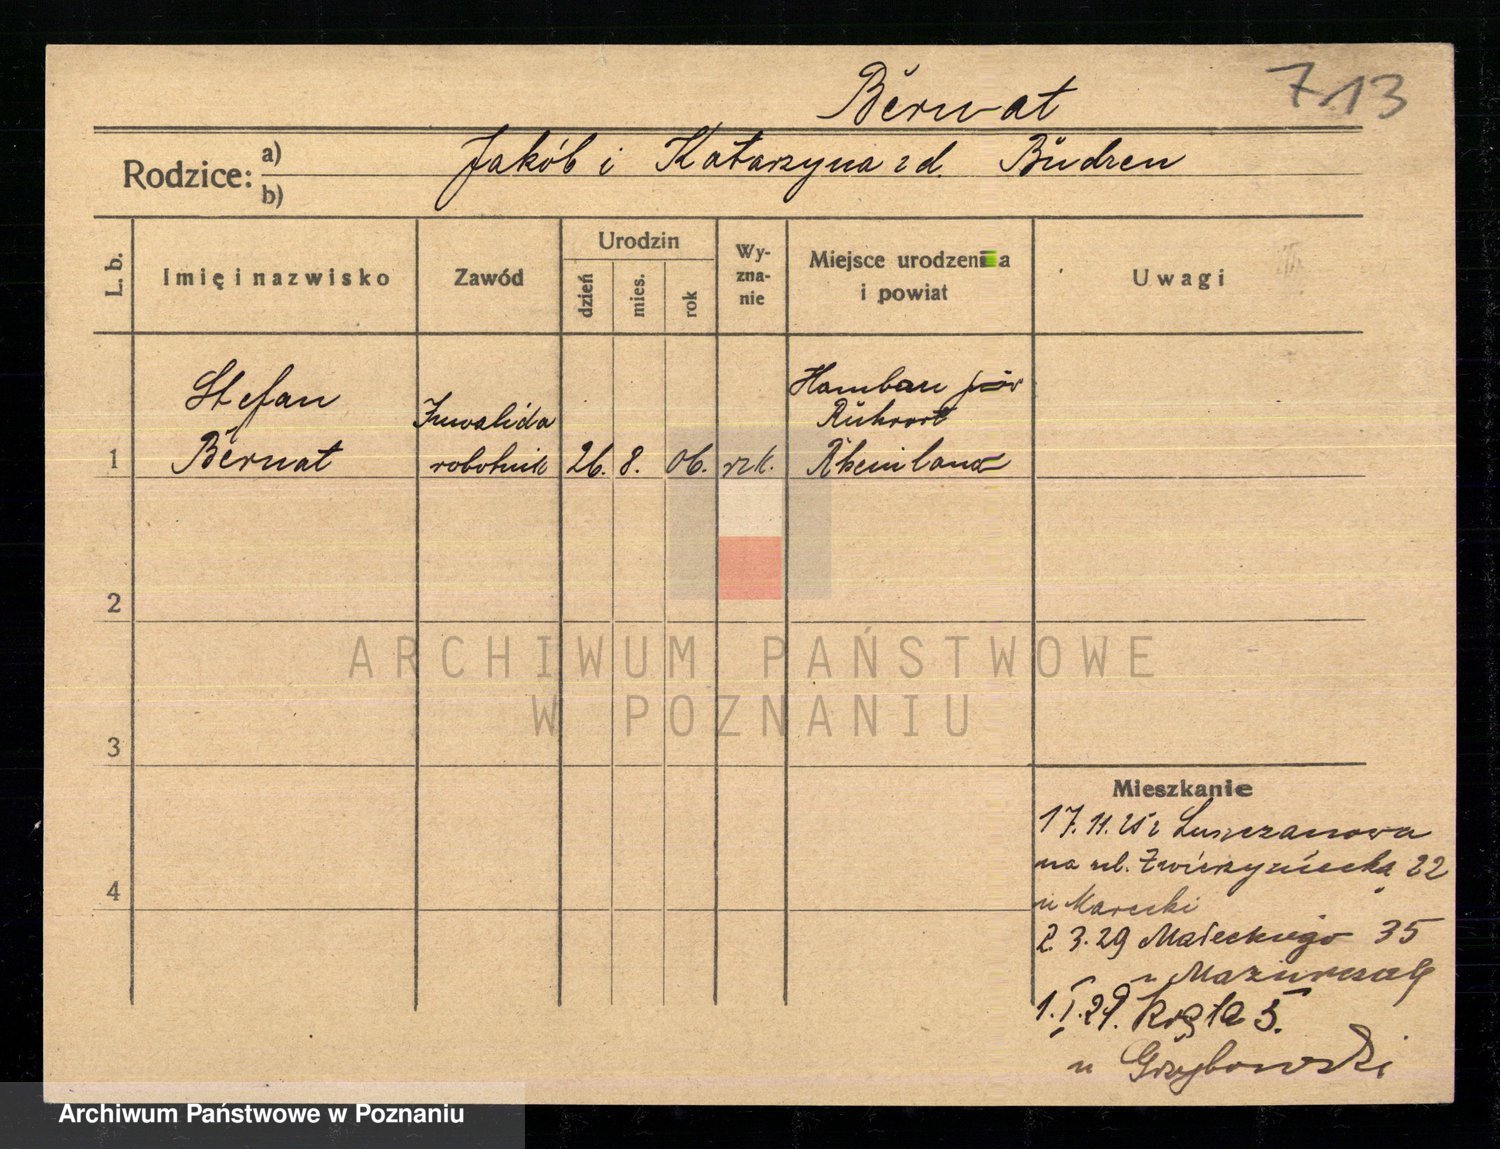 Bernat
713
Rodzice: a) Jakób i Katarzyna z d. Budzen
b)
L. b.
Imię i nazwisko
Zawód
Urodzin
dzień
mies.
rok
Wy-
zna-
nie
Miejsce urodzenia
i powiat
Uwagi
1
Stefan
Bernat
Inwalida
robotnik
26. 8. 06.
rzk.
Hamborn
Ruhrort
Rheinland
2
3
4
Mieszkanie
17.11.25 z
na ul. Zwierzyniecka 22
u Marecki
2.3.29 Małeckiego 35
u Mazurczak
1.I.29. Kręta 5.
u Grzybowski
ARCHIWUM PAŃSTWOWE
W POZNANIU
Archiwum Państwowe w Poznaniu